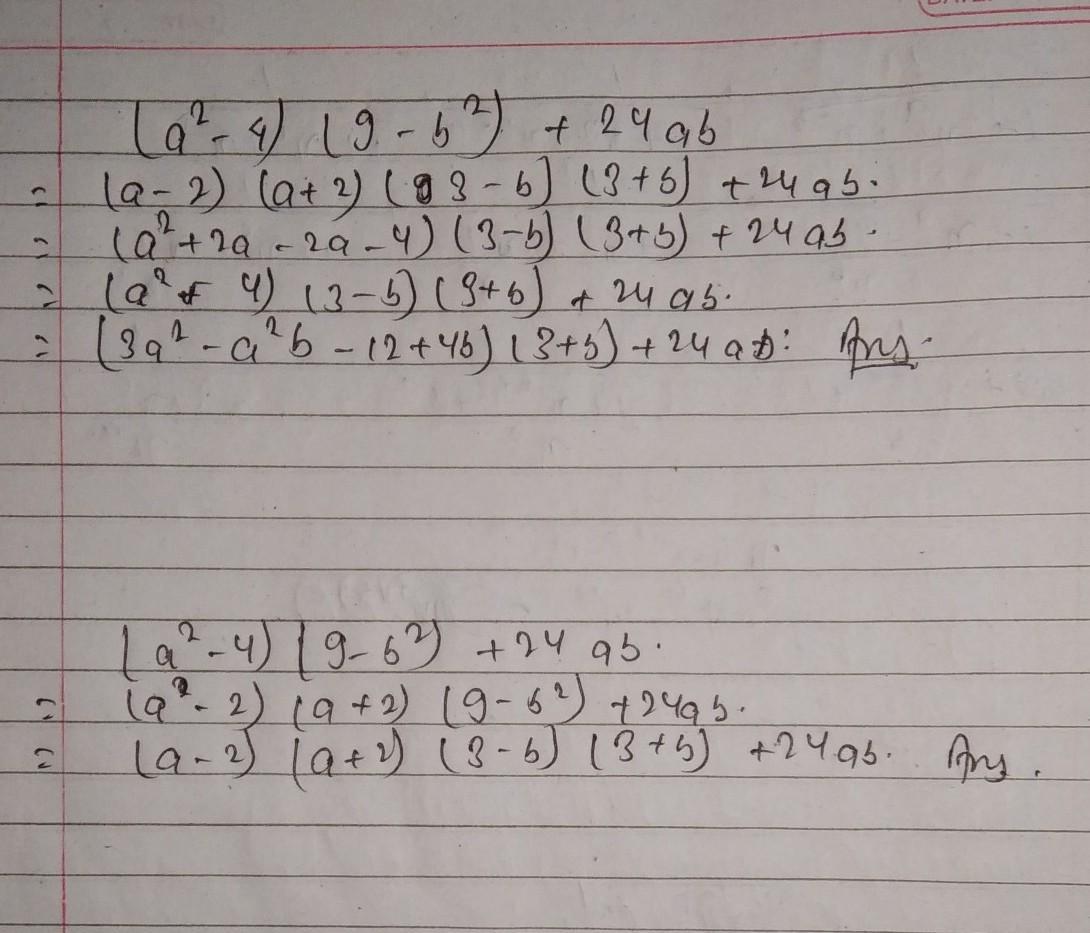 (a² - 4) (9 - b²) + 24 ab
= (a - 2) (a + 2) (3 - b) (3 + b) + 24 ab.
= (a² + 2a - 2a - 4) (3 - b) (3 + b) + 24 ab.
= (a² - 4) (3 - b) (3 + b) + 24 ab.
= (3a² - a²b - 12 + 4b) (3 + b) + 24 ab: Ans.
(a² - 4) (9 - b²) + 24 ab.
= (a² - 2) (a + 2) (9 - b²) + 24ab.
= (a - 2) (a + 2) (3 - b) (3 + b) + 24 ab. Ans.